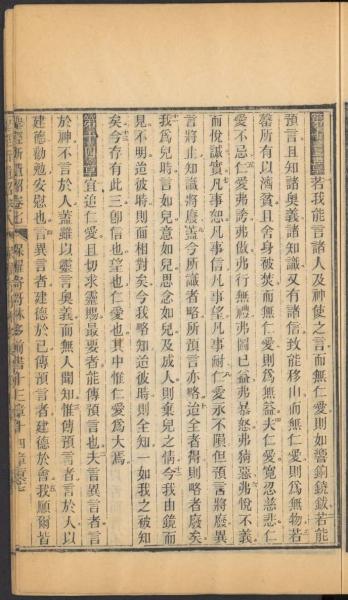 第十三章 若我能言諸人及神使之言而無仁愛則如響銅鐃鈸若能
預言且知諸奧義諸知識又有諸信致能移山而無仁愛則爲無物若
罄所有以濟貧且舍身被焚而無仁愛則爲無益夫仁愛寬忍慈悲仁
愛不忌仁愛弗誘弗做弗行無禮弗圖已益弗暴怒弗猜惡弗悅不義
而悅誠實凡事恕凡事信凡事望凡事耐仁愛永不隕但預言將廢異
言將止知識將廢蓋今所識者略所預言亦略迨全者得則略者廢矣
我爲兒時言如兒意如兒思念如兒及成人則棄兒之情今我由鏡而
見不明迨彼時則面相對矣今我略知迨彼時則全知一如我之被知
矣今存有此三卽信也望也仁愛也其中惟仁愛爲大焉
第十四章 宜追仁愛且切求靈賜最要者能傳預言也夫言異言者言
於神不言於人蓋雖以靈言奧義而無人聞知惟傳預言者言於人以
建德勸勉安慰也言異言者建德於已傳預言者建德於會我願爾皆